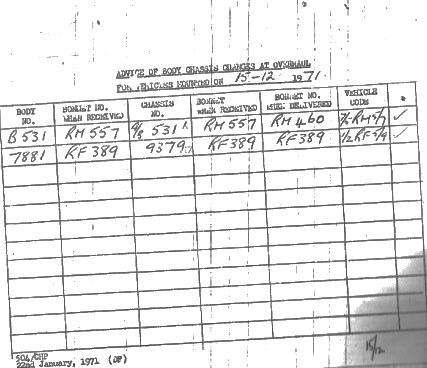 ADVICE OF BODY CHASSIS CHANGES AT OVERHAUL
FOR VEHICLES MOUNTED ON 15-12 1971
BODY NO. BONNET NO. WHEN RECEIVED CHASSIS NO. BONNET WHEN RECEIVED BONNET NO. WHEN DELIVERED VEHICLE CODE
B531 RM557 531 RM557 RM460
7881 RF389 9379 RF389 RF389
15/12
504/CHP
22nd January, 1971 (DF)